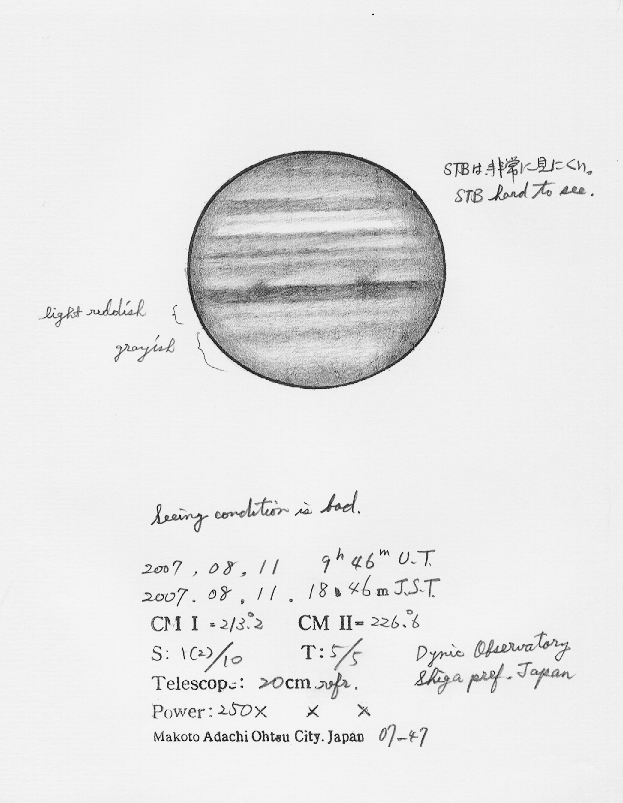 STBは非常に見にくい。
STB hard to see.
light reddish
grayish
Seeing condition is bad.
2007, 08, 11 9h 46m U.T.
2007. 08. 11. 18h 46m J.S.T.
CM I = 213.°2 CM II = 226.°6
S: 1(2)/10 T: 5/5 Dynic Observatory
Telescope: 20cm refr. Shiga pref. Japan
Power: 250× × ×
Makoto Adachi Ohtsu City. Japan 07-47